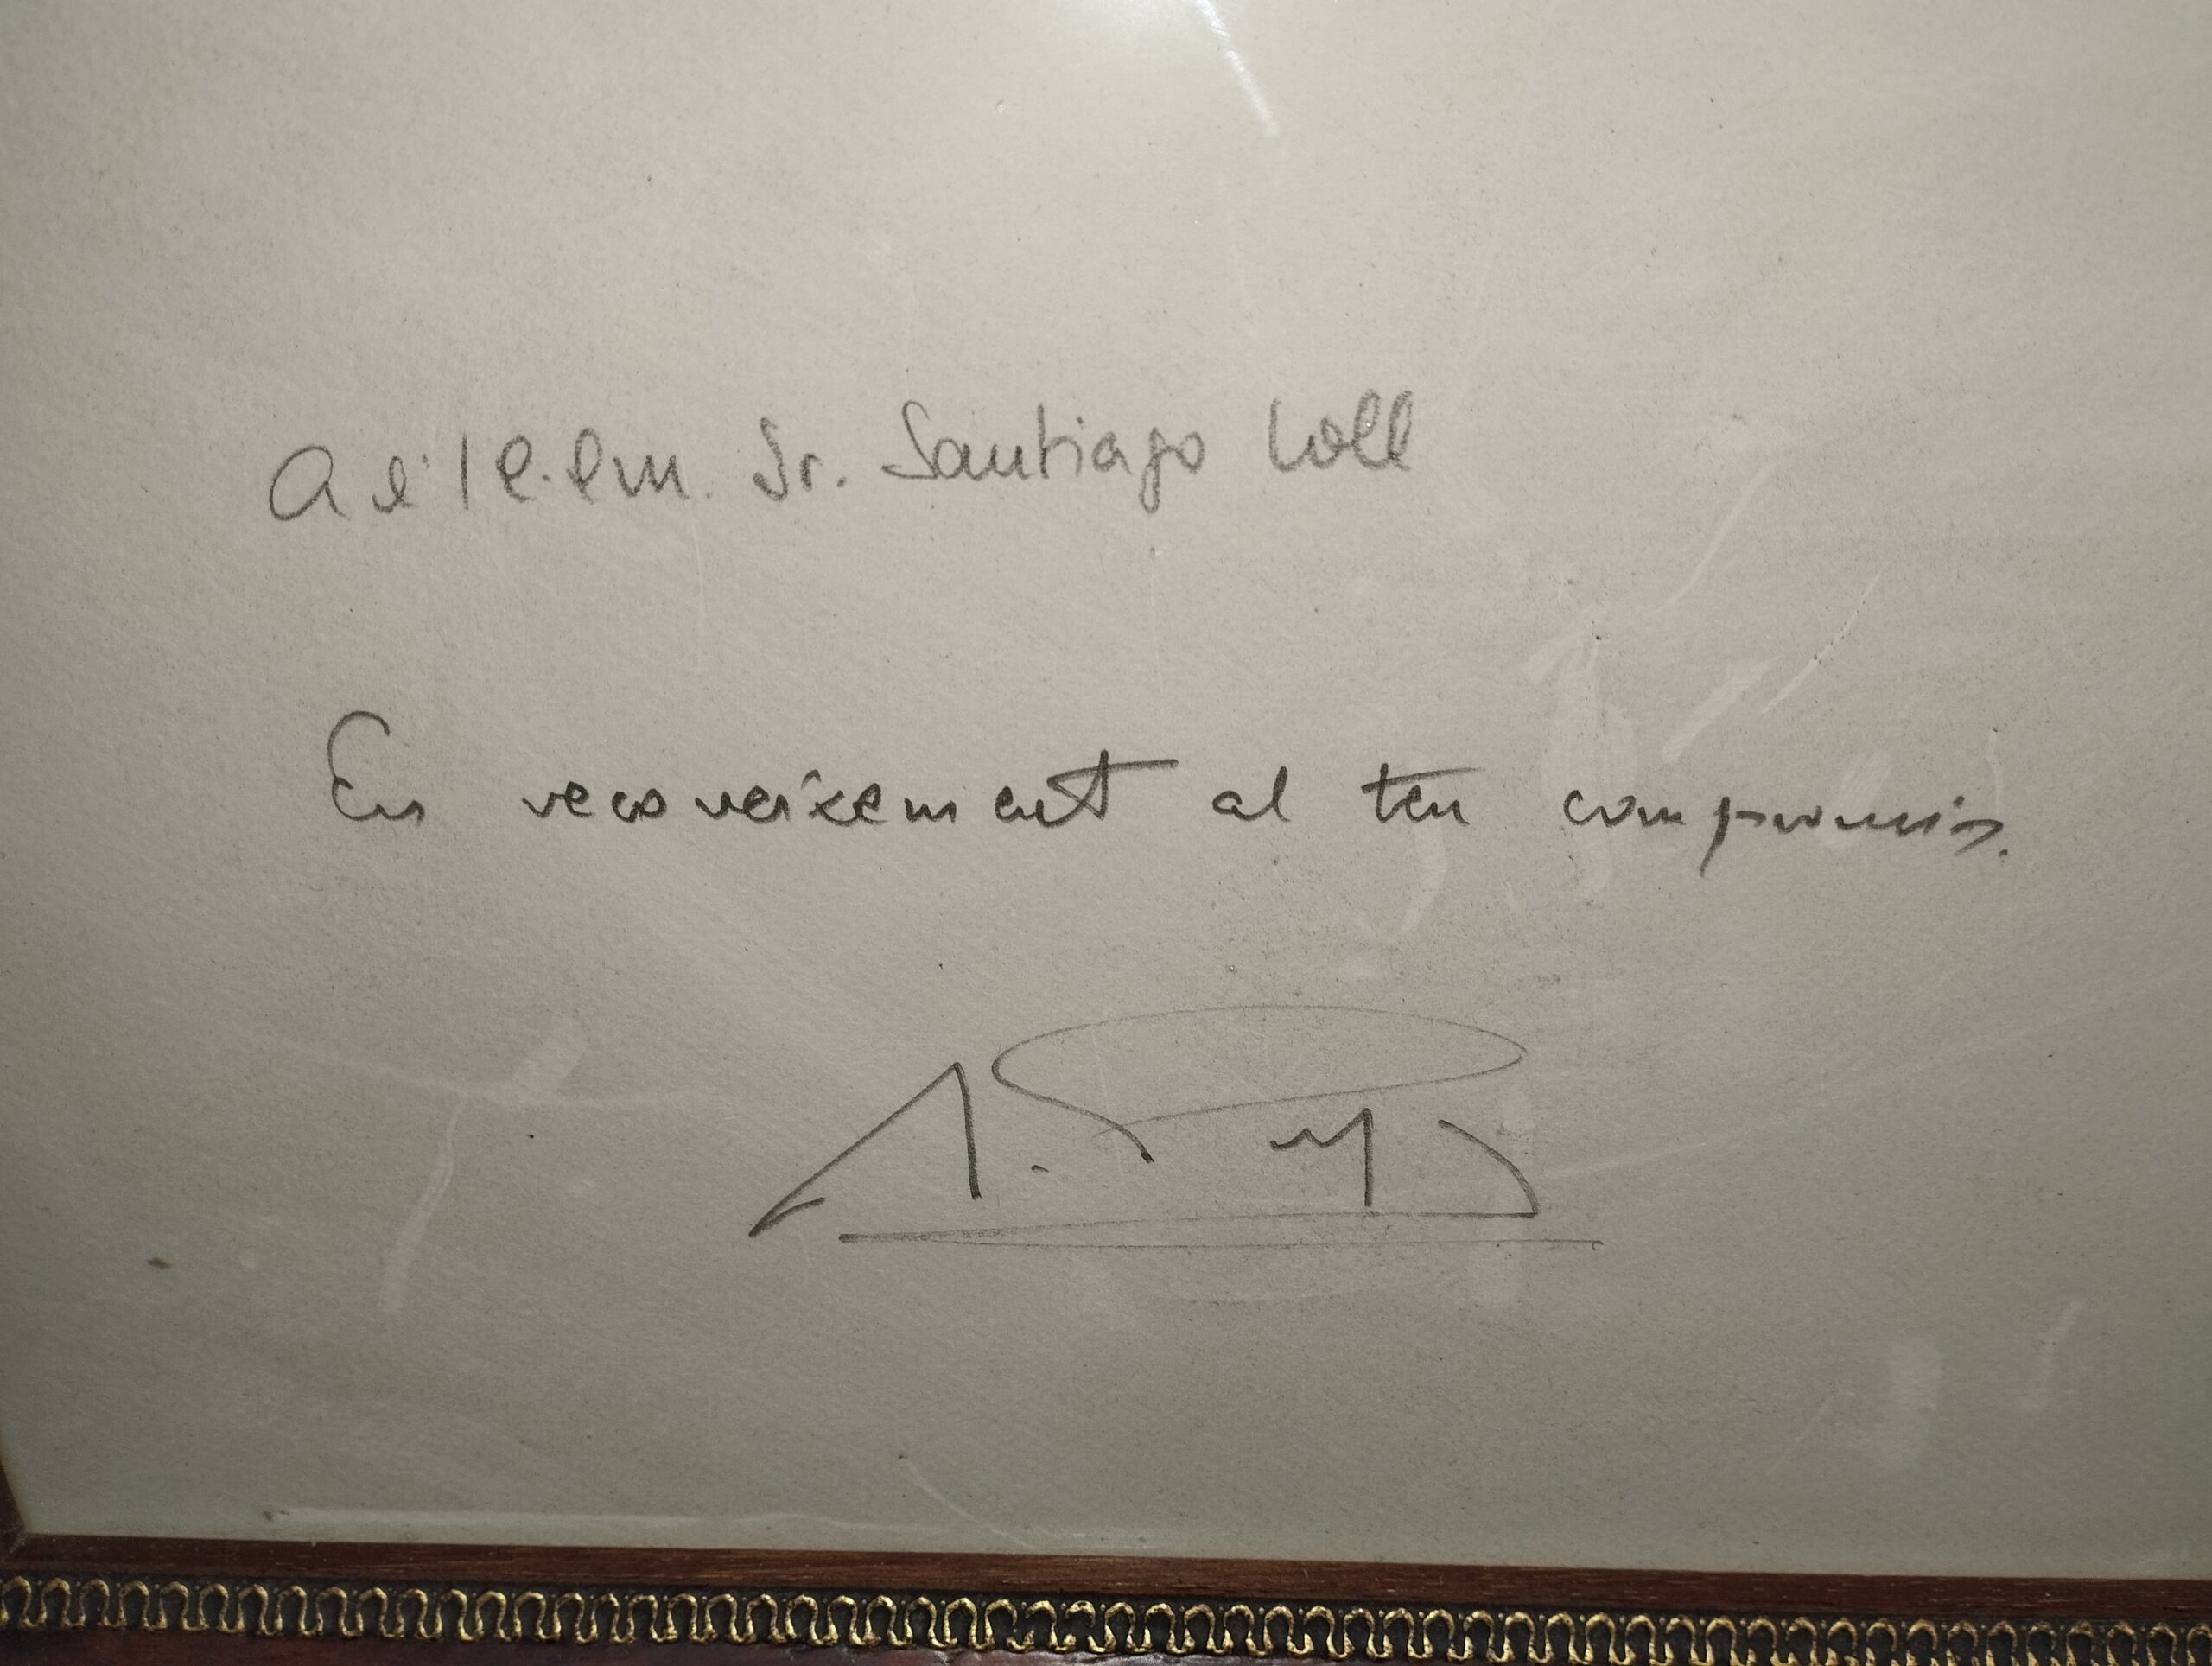 A l'Il.lm. Sr. Santiago Coll
En reconeixement al teu compromís.
A. Puig